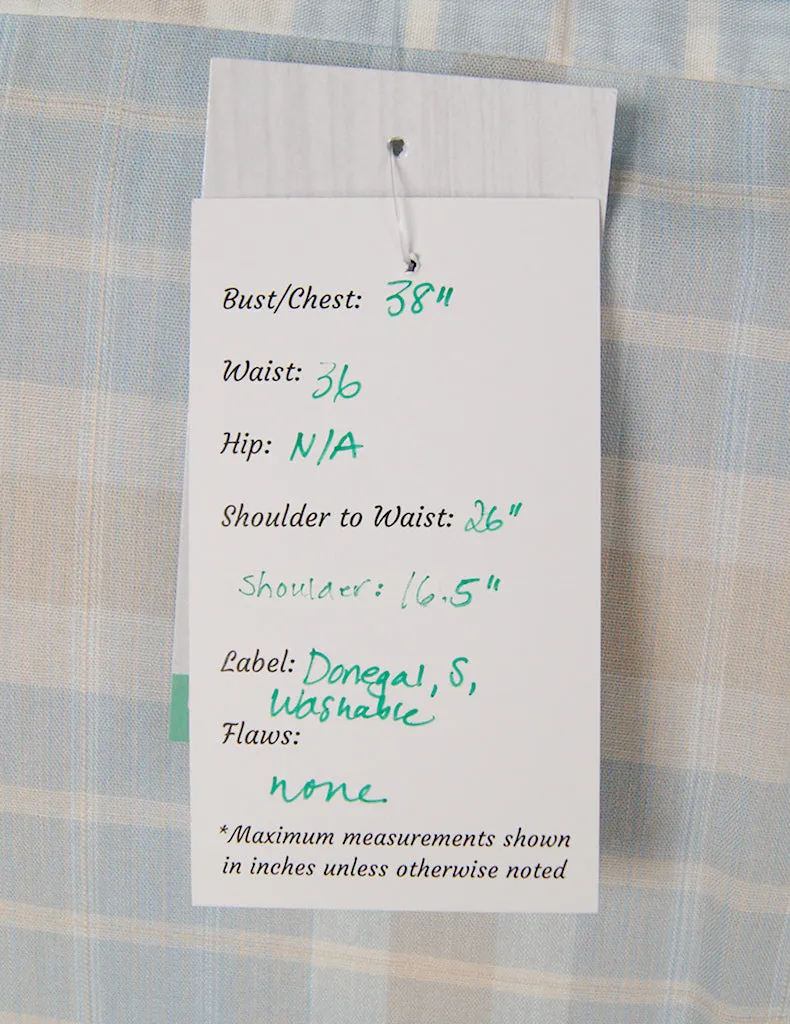 Bust/Chest: 38"
Waist: 36
Hip: N/A
Shoulder to Waist: 26"
Shoulder: 16.5"
Label: Donegal, S,
Washable
Flaws:
none
*Maximum measurements shown
in inches unless otherwise noted